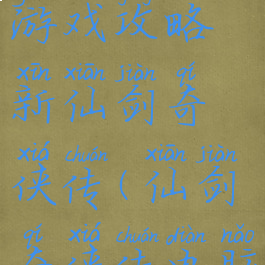 游戏攻略
xīn xiān jiàn qí
新仙剑奇
xiá chuán xiān jiàn
侠传(仙剑
qí xiá chuán diàn nǎo
奇侠传电脑